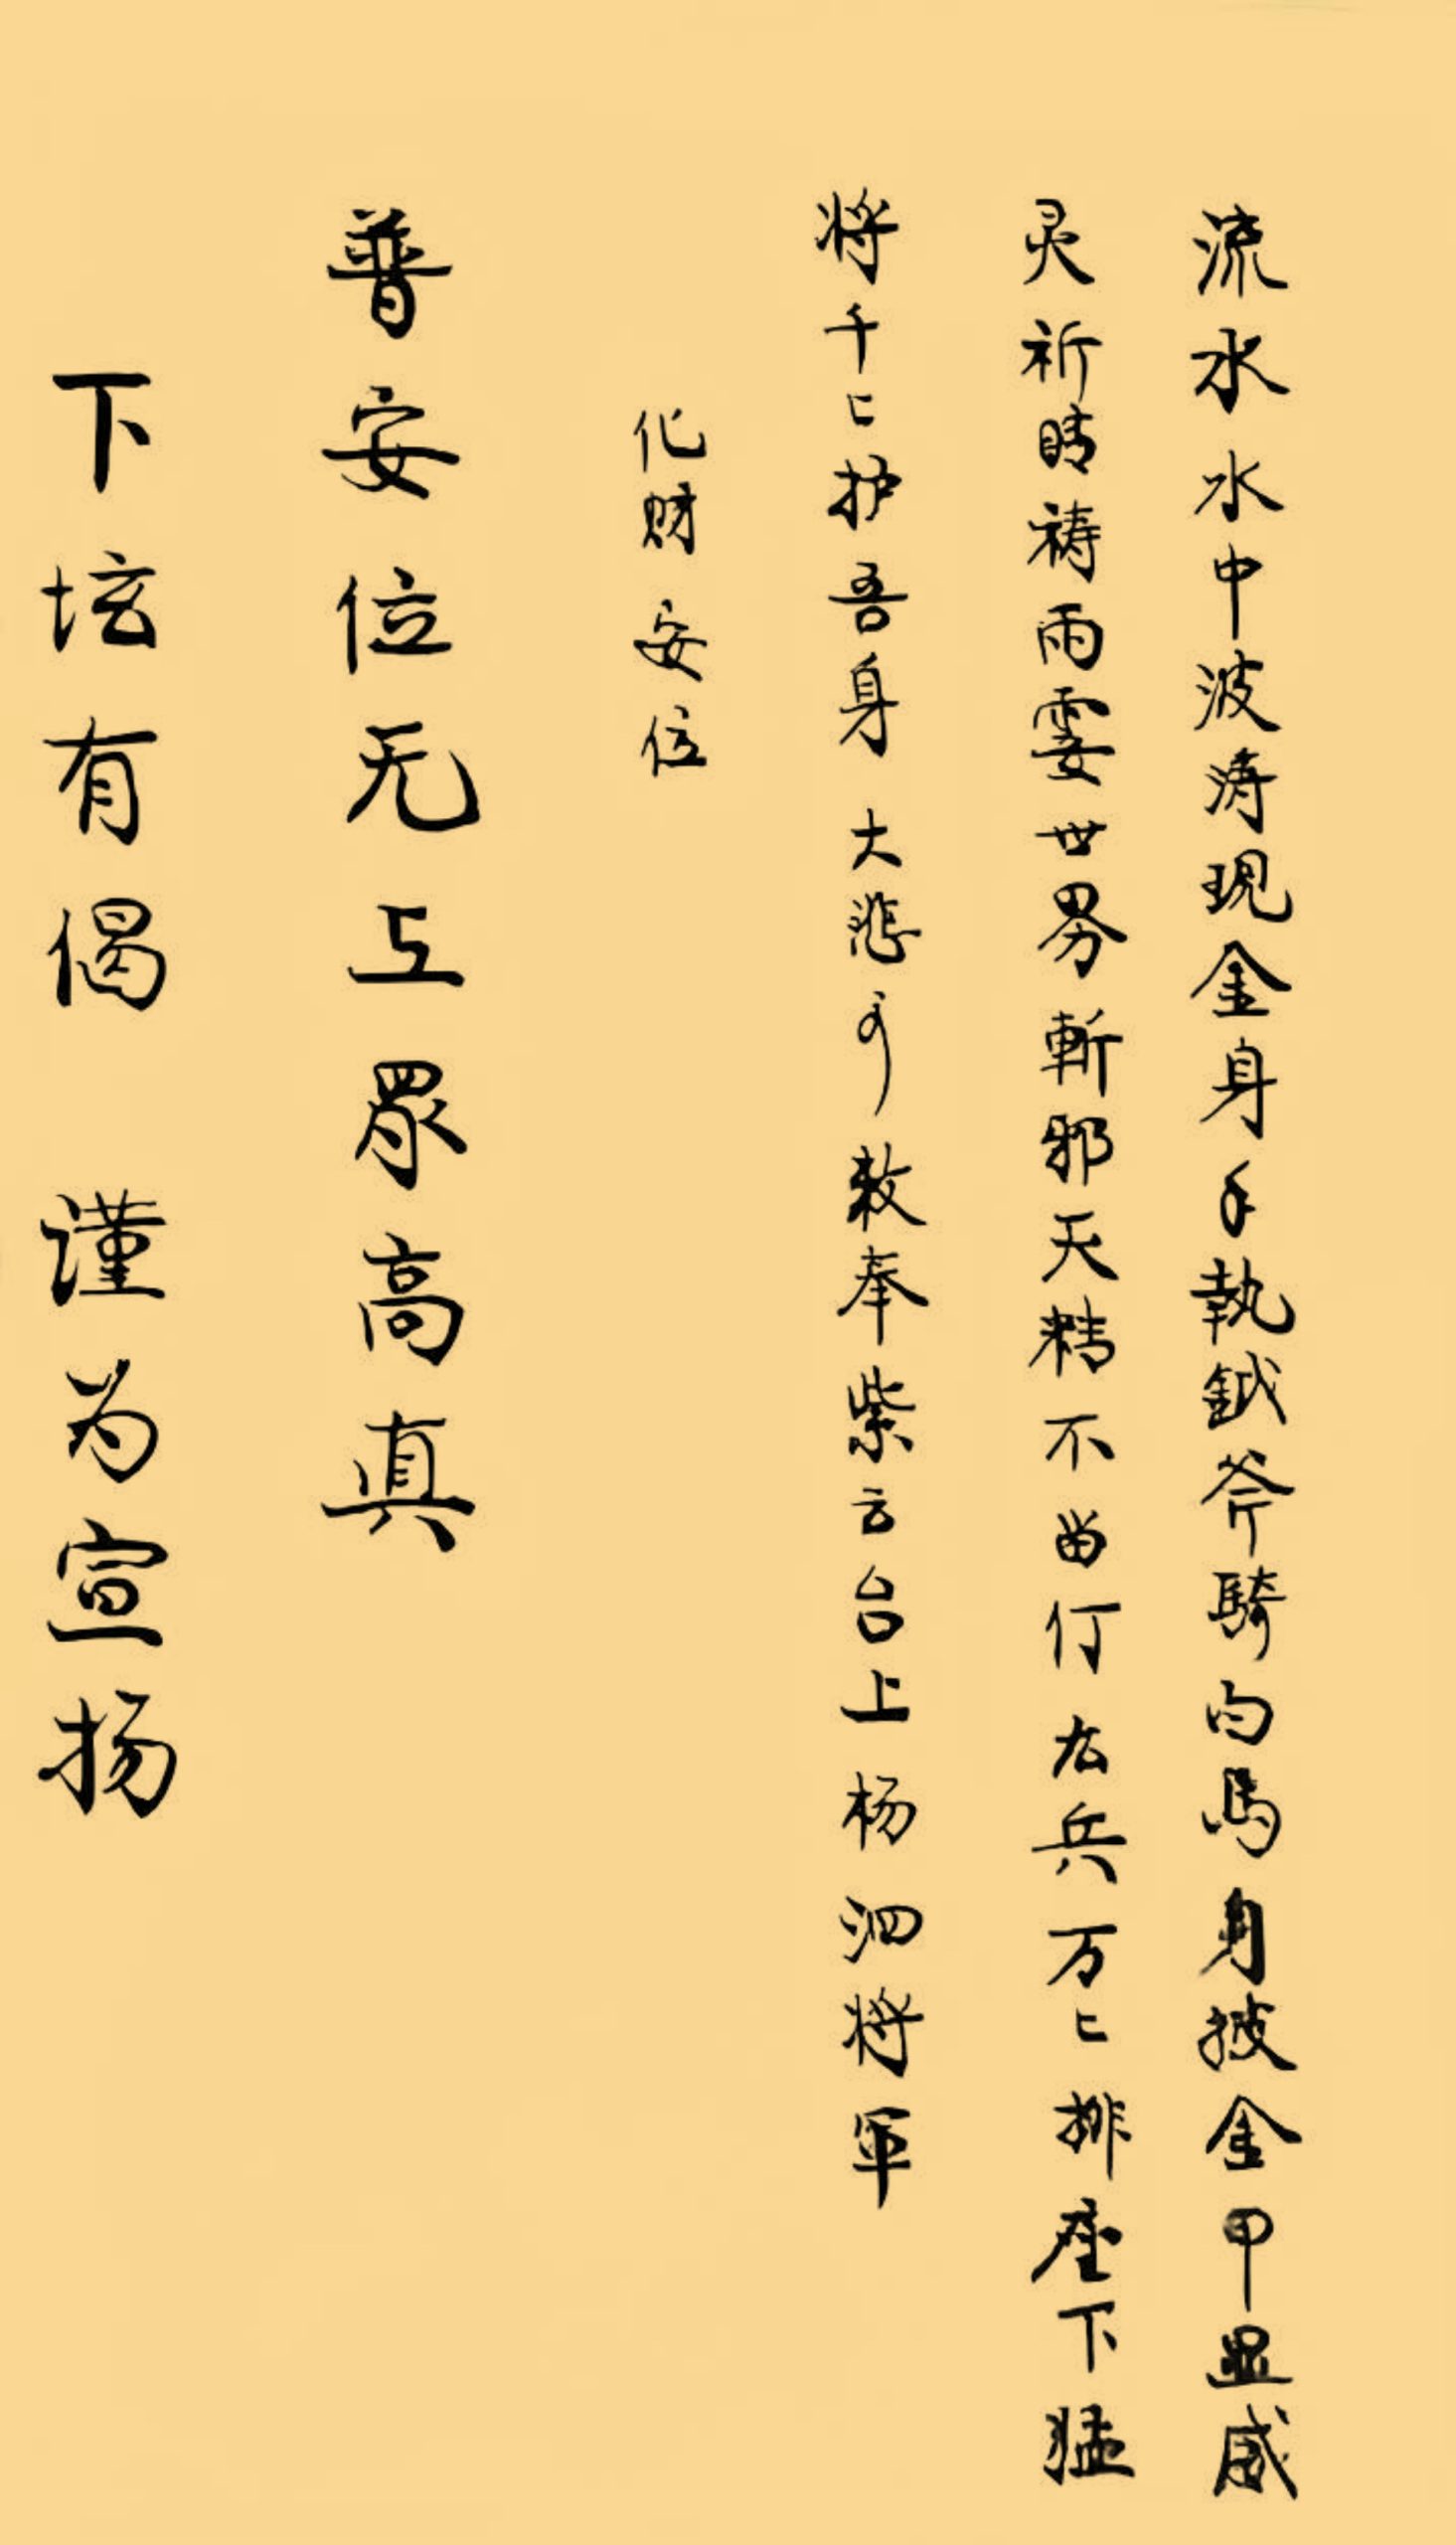 流水水中波涛現金身手執鉞斧騎白馬身披金甲显威
灵祈晴祷雨雲世界斬邪天精不留停左兵万〻排座下猛
将千〻护吾身大悲敕奉紫云台上杨泗将军
化财安位
普安位无上眾高真
下坛有偈 谨为宣扬